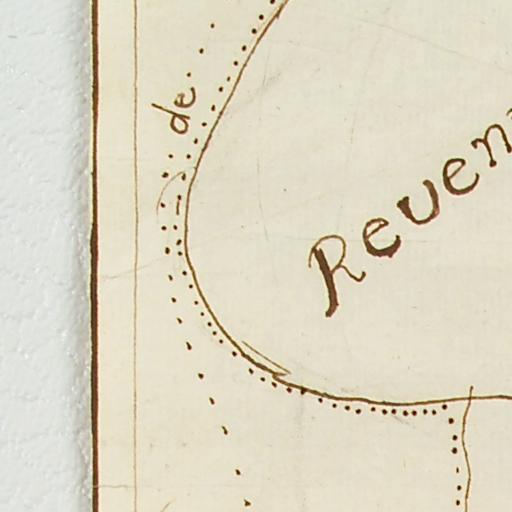 de
Reven